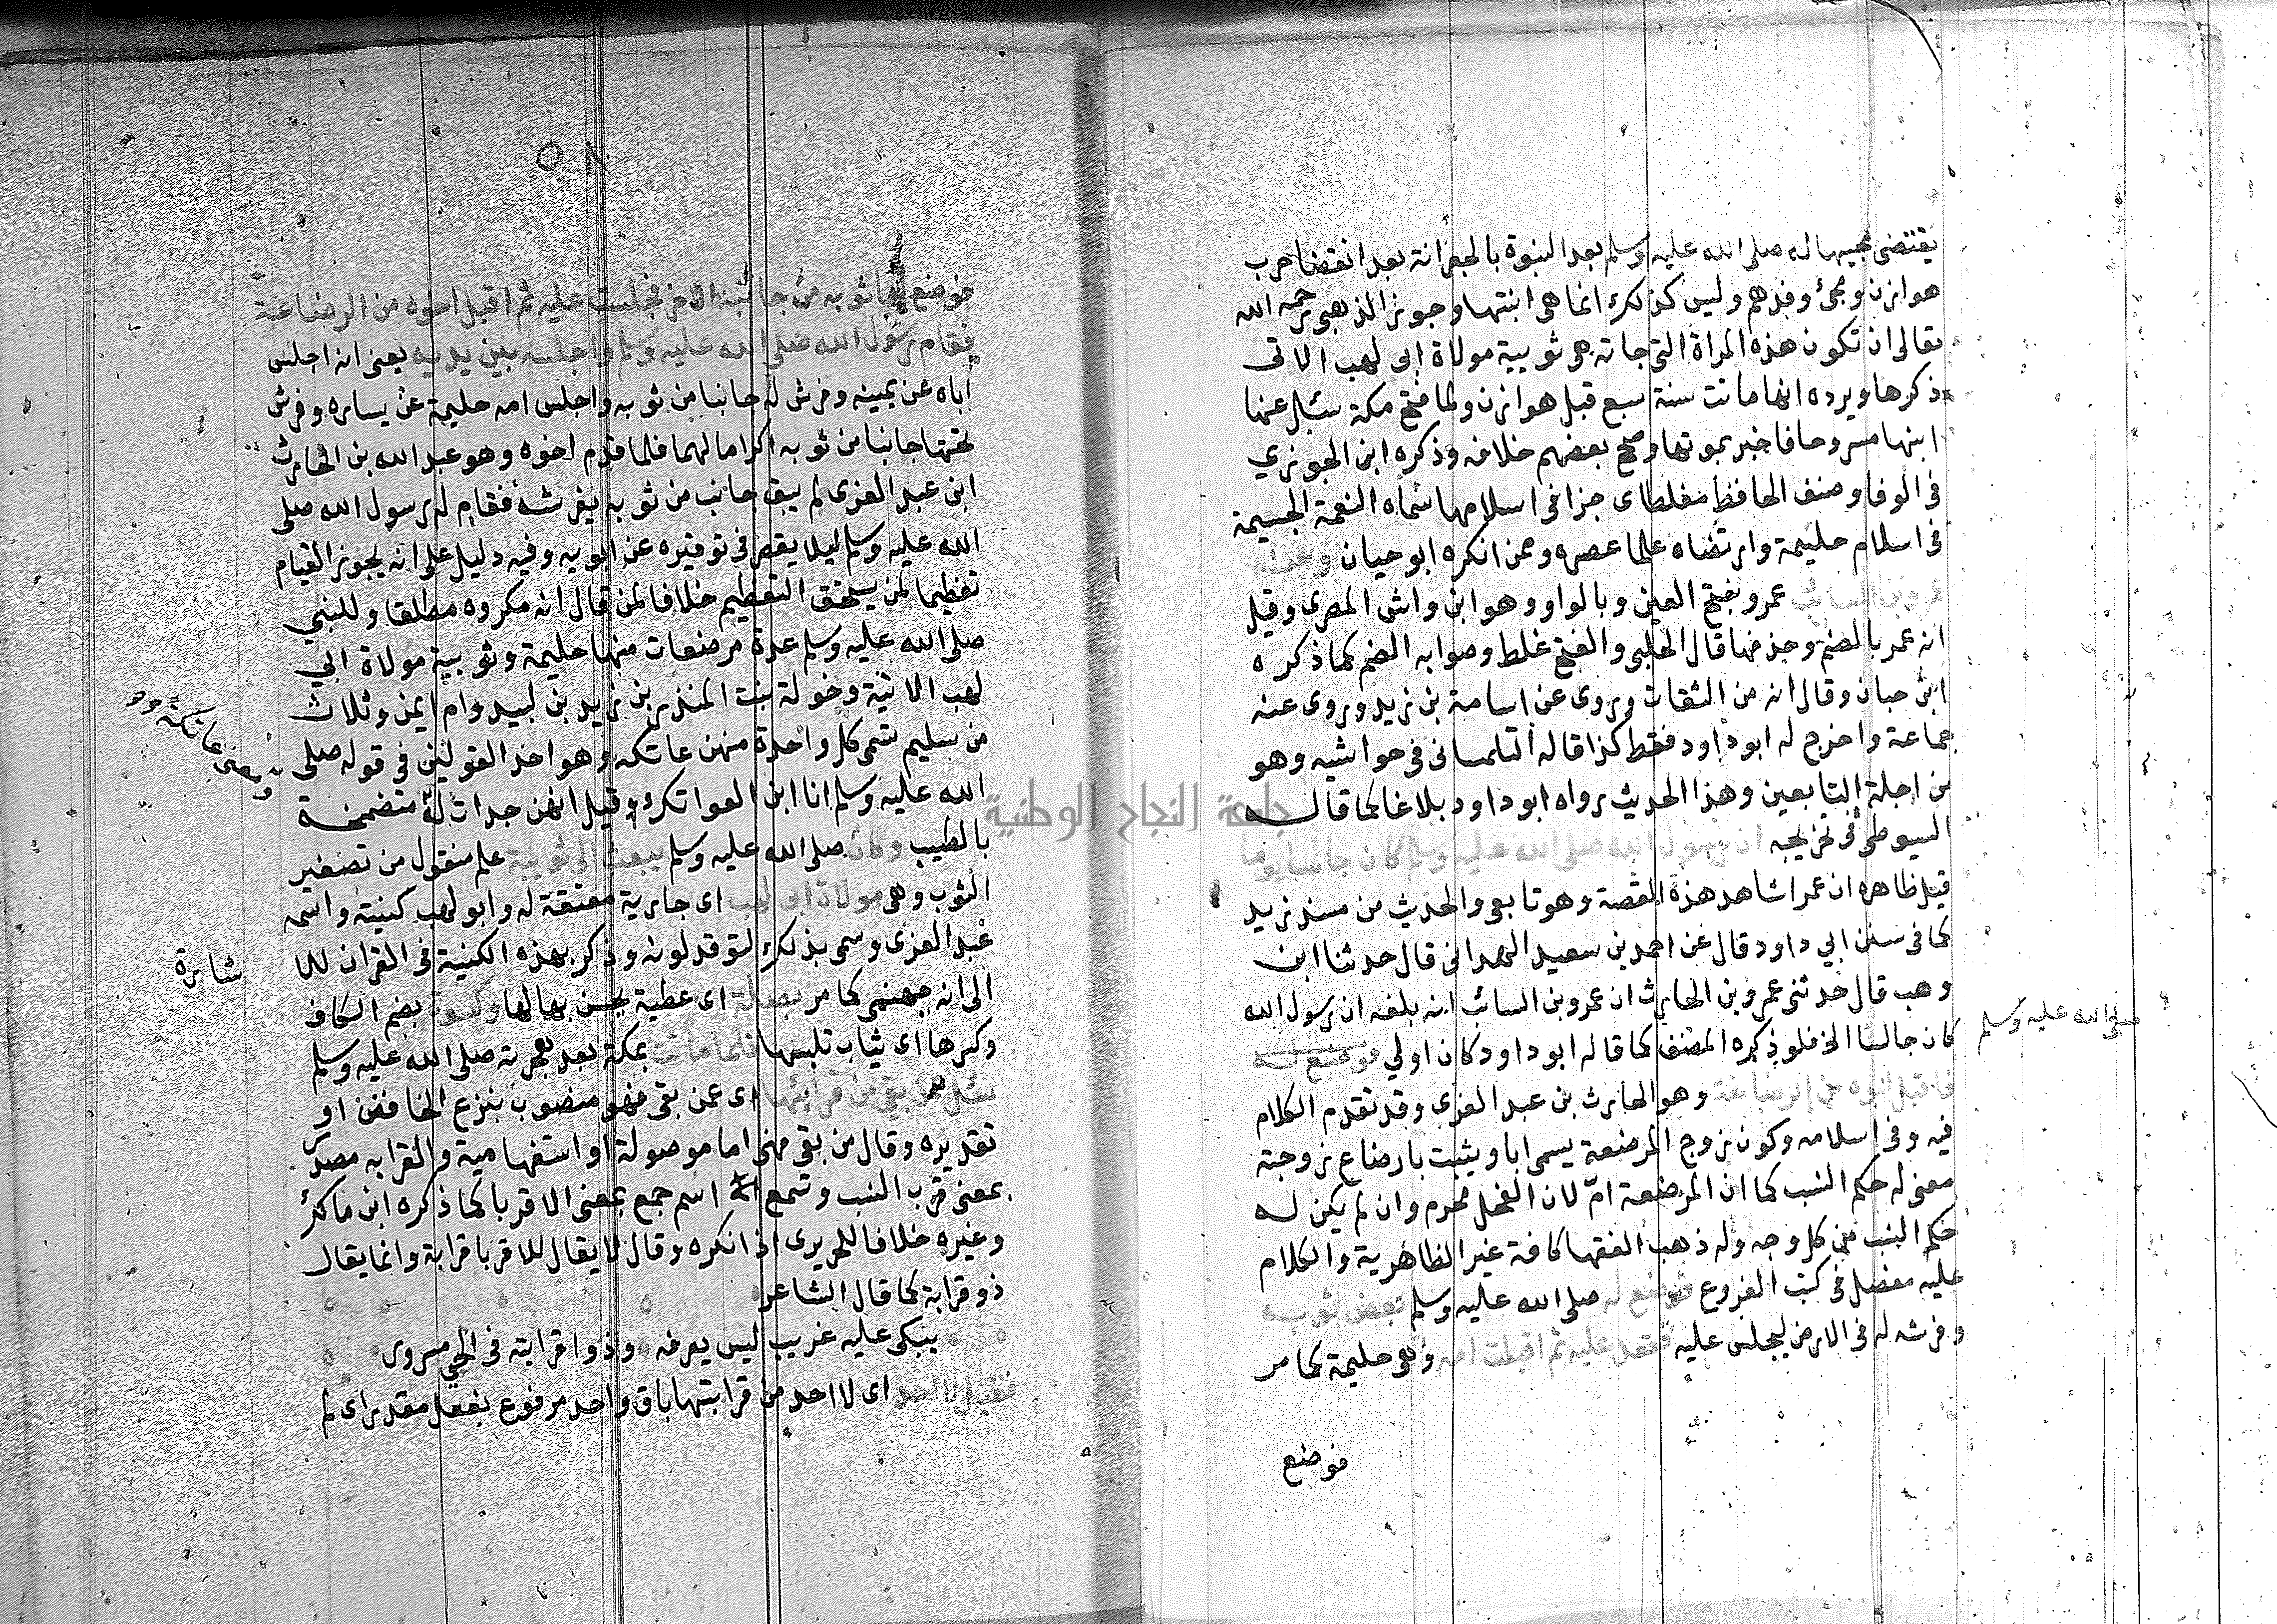 يقتضى مجيبها له صلى الله عليه وسلم بعد النبوة بالجعرانة بعد انقضا حرب
هوازن ومجئ وفدهم وليس كذلك انما هى ابنتها وجوز الذهبى رحمه الله
تعالى ان تكون هذه المراة التى جاته هى ثويبة مولاة ابى لهب الاتى
ذكرها ويرده انها ماتت سنة سبع قبل هوازن ولما فتح مكة سئل عنها
ابنها مسروحا فاخبر بموتها وصحح بعضهم خلافه وذكره ابن الجوزي
فى الوفا وصنف الحافظ مغلطاى جزا فى اسلامها سماه النعمة الجسيمة
فى اسلام حليمة وارتضاه علما عصره وممن انكره ابو حيان وعن
عمرو بن السائب عمرو بفتح العين وبالواو وهو ابن واش المصرى وقيل
انه عمر بالضم وحذفها قال الحلبى والفتح غلط وصوابه الضم كما ذكره
ابن حبان وقال انه من الثقات وروى عن اسامة بن زيد وروى عنه
جماعة واخرج له ابو داود فقط كذا قاله التلمسانى فى حواشيه وهو
من اجلة التابعين وهذا الحديث رواه ابو داود بلاغا كما قاله
السيوطى فى تخريجه ان رسول الله صلى الله عليه وسلم كان جالسا يوما
قيل ظاهره ان عمرا شاهد هذه القصة وهو تابعى والحديث من مسند زيد
كما فى سنن ابي داود قال عن احمد بن سعيد الهمدانى قال حدثنا ابن
وهب قال حدثنى عمرو بن الحارث ان عمرو بن السائب انه بلغه ان رسول الله
صلى الله عليه وسلم
كان جالسا الخ فلو ذكره المصنف كما قاله ابو داود كان اولي فوضع له
فاقبل ابوه من الرضاعة وهو الحارث بن عبد العزى وقد تقدم الكلام
فيه وفى اسلامه وكون زوج المرضعة يسمى ابا ويثبت بارضاع زوجته
معنى له حكم النسب كما ان المرضعة ام لان الفحل محرم وان لم يكن له
حكم النسب من كل وجه وله ذهب الفقها كافة غير الظاهرية والكلام
عليه مفصل فى كتب الفروع فوضع له صلى الله عليه وسلم بعض ثوبه
وفرشه له فى الارض ليجلس عليه فقعد عليه ثم اقبلت امه وهى حليمة كما مر
فوضع
٥٨
فوضع لها ثوبه من جانبه الاخر فجلست عليه ثم اقبل اخوه من الرضاعة
فقام رسول الله صلى الله عليه وسلم واجلسه بين يديه يعنى انه اجلس
اباه عن يمينه وفرش له جانبا من ثوبه واجلس امه حليمة عن يساره وفرش
تحتها جانبا من ثوبه اكراما لهما فلما قدم اخوه وهو عبد الله بن الحارث
ابن عبد العزى لم يبق جانب من ثوبه يفرشه فقام له رسول الله صلى
الله عليه وسلم ليلا يقصر فى توقيره عن ابويه وفيه دليل على انه يجوز القيام
تعظيما لمن يستحق التعظيم خلافا لمن قال انه مكروه مطلقا وللنبي
صلى الله عليه وسلم عدة مرضعات منها حليمة وثويبة مولاة ابي
لهب الاتية وخولة بنت المنذر بن زيد بن لبيد وام ايمن وثلاث
من سليم تسمى كل واحدة منهن عاتكه وهو احد القولين فى قوله صلى
الله عليه وسلم انا ابن العواتك وقيل انهن جدات له متضمخة
بالطيب وكان صلى الله عليه وسلم يبعث الى ثويبة علم منقول من تصغير
الثوب وهى مولاة ابى لهب اى جارية معتقة له وابو لهب كنيته واسمه
عبد العزى وسمى بذلك لتوقد لونه وذكر بهذه الكنية فى القران للا
شارة
الى انه جهنمى كما مر بصلة اى عطية يحسن بها لها وكسوة بضم الكاف
وكسرها اى ثياب تلبسها فلما ماتت بمكة بعد هجرته صلى الله عليه وسلم
سئل من بقى من قرابتها اى عمن بقى فهو منصوب بنزع الخافض او
تقديره وقال من بقى فهى اما موصولة او استفهامية والقرابه مصدر
بمعنى قرب النسب وتسمع اسم جمع بمعنى الاقربا كما ذكره ابن مالك
وغيره خلافا للحريرى اذ انكره وقال لا يقال للاقربا قرابة وانما يقال
ذو قرابة كما قال الشاعر
يبكى عليه غريب ليس يعرفه وذوا قرابته فى الحي مسرور
فقيل لا احد اى لا احد من قرابتها باق واحد مرفوع بفعل مقدر اى لم
جامعة النجاح الوطنية